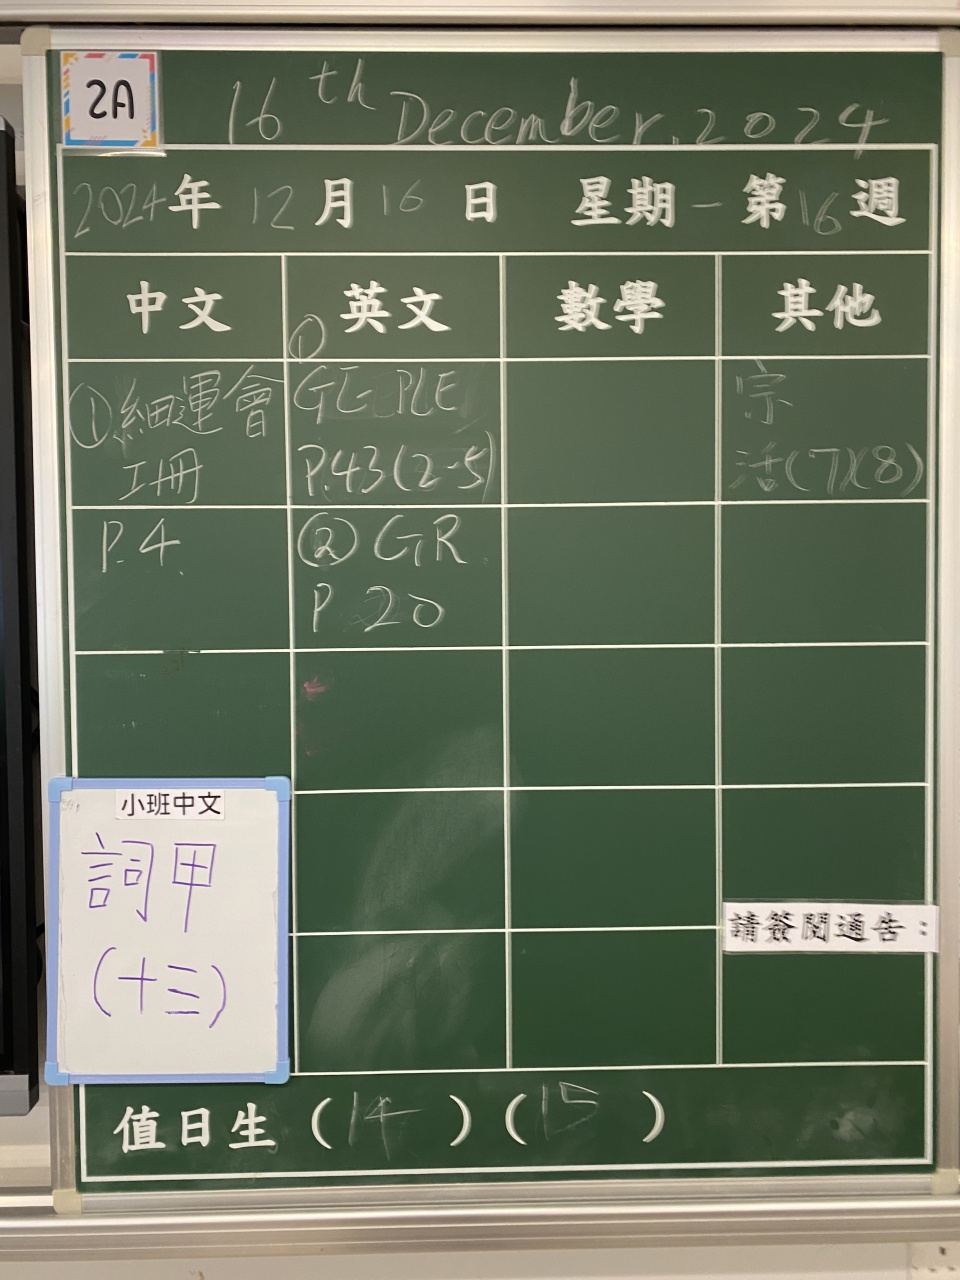 2A
16th December, 2024
2024年 12月 16日 星期一 第16週
中文 英文 數學 其他
①細運會
工冊
P.4
①
GE PLE
P.43(2-5)
②GR
P 20
宗
活(7)(8)
小班中文
詞甲
(十三)
請簽閱通告：
值日生 (14) (15)